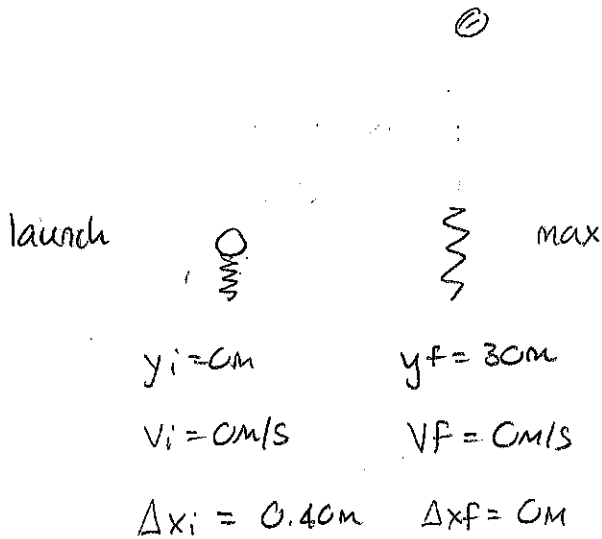 launch max
yi = 0m yf = 30m
Vi = 0m/s Vf = 0m/s
Δxi = 0.40m Δxf = 0m